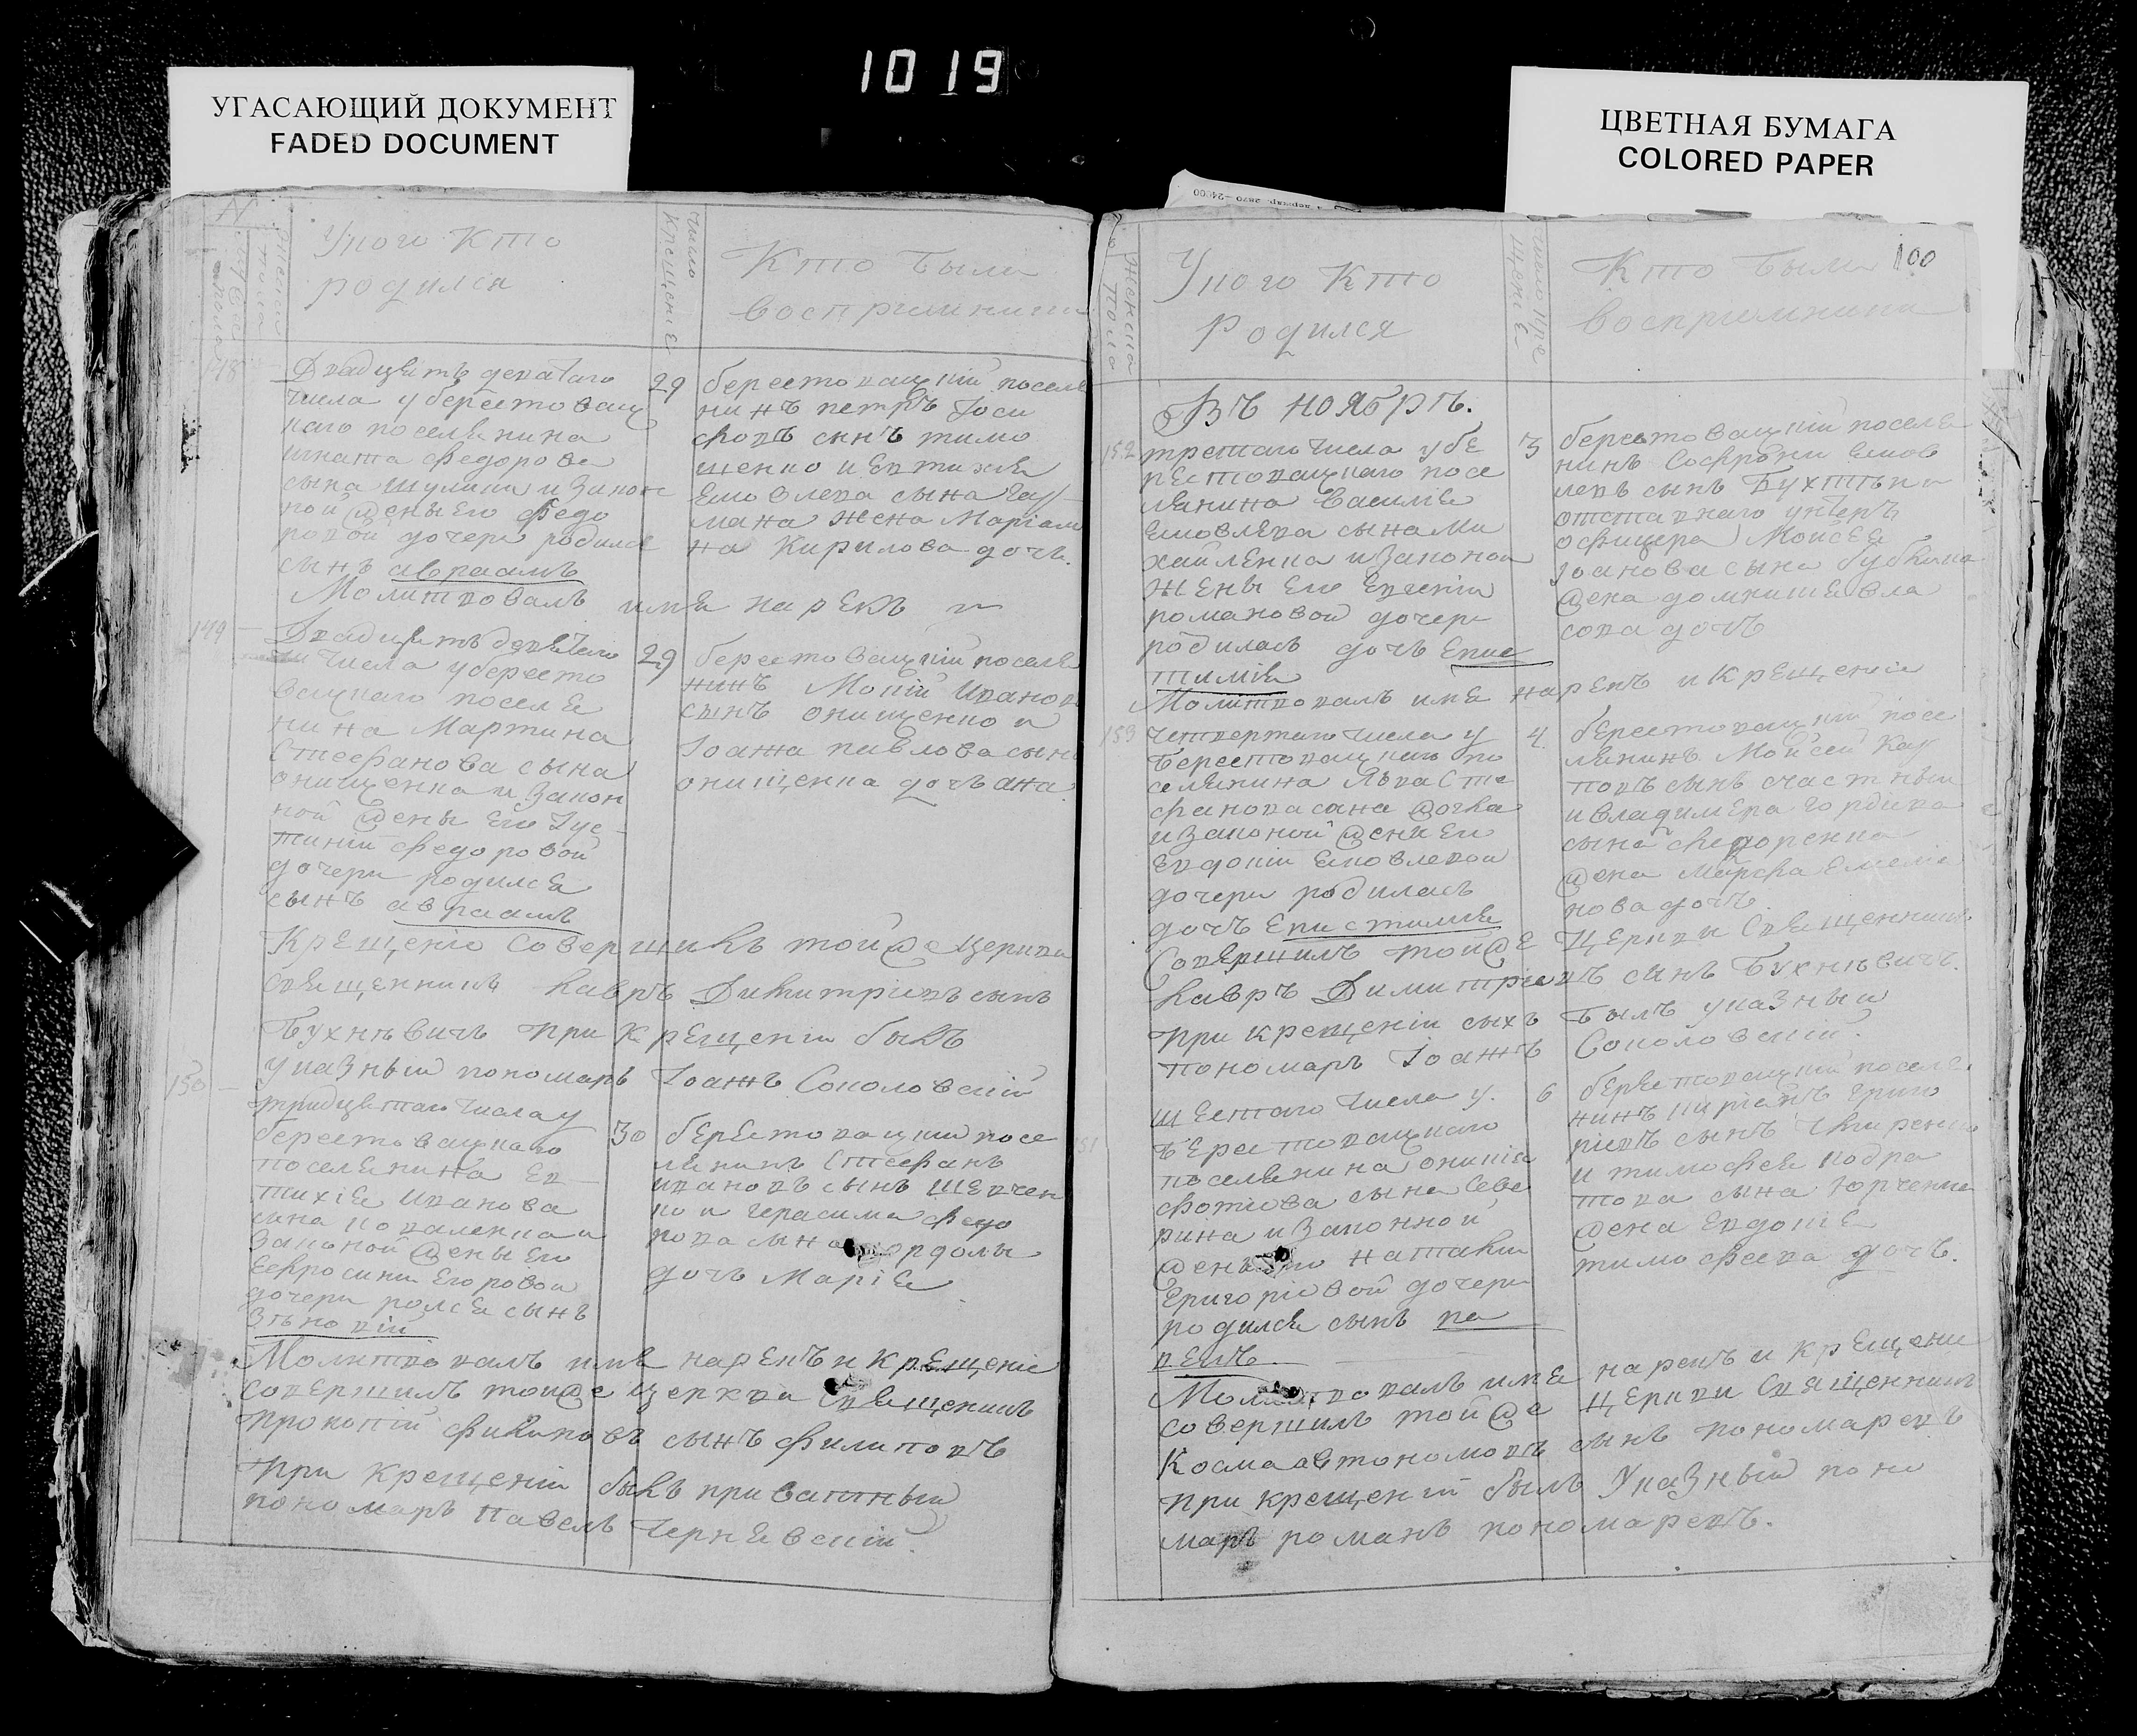 1019
УГАСАЮЩИЙ ДОКУМЕНТ
FADED DOCUMENT
ЦВЕТНАЯ БУМАГА
COLORED PAPER
Уного Кто
родился
число
крещенiе
Кто были
восприемники
148
Двадцять девятаго
числа уберестовец
каго поселянина
игната федорова
сына шулики и закон
ной жены его федо
ровой дочери родился
сынъ авраамъ
29
берестовецкiй поселя
нинъ петръ Iоси
фовъ сынъ тимо
щенко и евтихия
емовлева сына
мана жена Марiам
на Кирилова дочь.
Молитвовалъ имя нарекъ и
149
Двадцять девятаго
числа у бересто
вецкаго поселя
нина Мартина
Стефанова сына
онищенка и закон
ной жены его Iус
тинiи федоровой
дочери родился
сынъ авраамъ
29
берестовецкiй поселя
нинъ Мокiй Иванов
сынъ онищенко и
Iоанна павлова сына
онищенка дочь ана
Крещенiе совершилъ тойже церкви
священникъ лавръ Димитрiевъ сынъ
Бухнѣвичъ при крещенiи былъ
указный пономарь Iоаннъ Соколовскiй
150
тридцятаго числа у
берестовецкаго
поселянина ев
тихiя иванова
сына коваленка и
законой жены его
ефросинiи Егоровой
дочери родился сынъ
Зѣновiй
30
берестовецкiй посе
лянинъ Стефанъ
ивановъ сынъ шевчен
ко и герасима федо
рова сына
дочь Марiя
Молитвовалъ имя нарекъ и крещенiе
совершилъ тойже церкви священникъ
прокопiй филиповъ сынъ филиповъ
при крещенiи былъ приватный
пономарь павелъ Чернявскiй.
100
Женска
пола
Уного Кто
Родился
Кто были
восприемники
Въ ноябрѣ.
152
третаго числа у бе
рестовецкаго посе
лянина василия
емовлева сына ми
хайленка и законой
жены его евгенiи
романовой дочери
родилась дочь епис
тимiя
3
берестовецкiй поселя
нинъ Софронiй емов
левъ сынъ
отставнаго унтеръ
офицера Мойсея
Iоанова сына бубкина
жена домникия вла
сова дочь
Молитвовалъ имя нарекъ и крещенiе
153
четвертаго числа у
берестовецкаго по
селянина Льва Сте
фанова сына
и законой жены его
евдокiи емовлевой
дочери родилась
дочь епистимия
4
берестовецкiй посе
лянинъ Мойсей Кар
повъ сынъ счастный
и владимера гордиева
сына федоренка
жена Марфа Емелiа
нова дочь.
Совершилъ тойже церкви священникъ
лавръ Димитрiевъ сынъ Бухнѣвичъ.
при крещенiи сихъ былъ указный
пономарь Iоаннъ Соколовскiй.
151
шестаго числа у
берестовецкаго
поселянина онисiя
фотиова сына севе
рина и законной
жены его наталiи
григорiевой дочери
родился сынъ па
велъ.
6
берестовецкiй поселя
нинъ кирiакъ григо
рiевъ сынъ
и тимофея кодра
това сына Юрченка
жена евдокiя
тимофеева дочь.
Молитвовалъ имя нарекъ и крещени
совершилъ тойже церкви священникъ
Косма автономовъ сынъ пономаревъ
при крещенiи былъ указный поно
марь романъ пономаревъ.